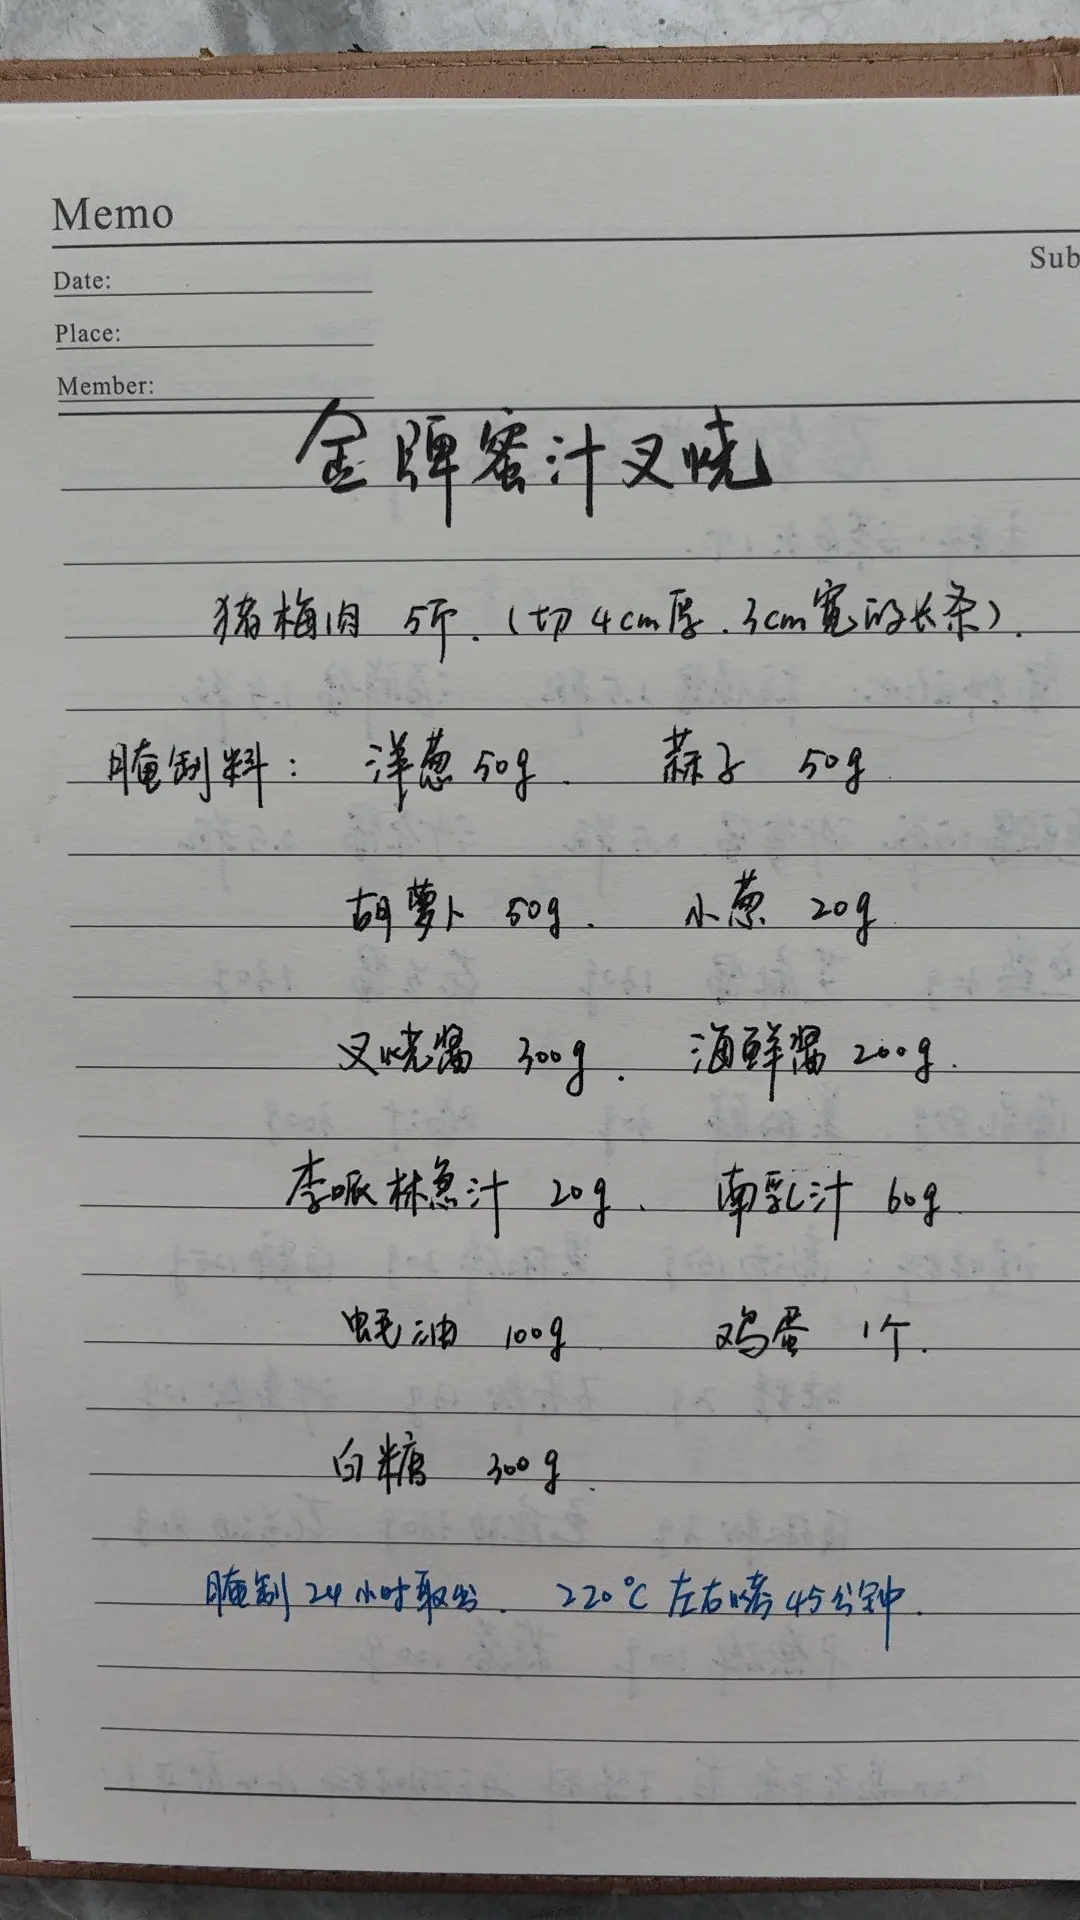 Memo
Sub
Date:
Place:
Member:
金牌蜜汁叉烧
猪梅肉 5斤.(切4cm厚.3cm宽的长条).
腌制料: 洋葱50g. 蒜子 50g
胡萝卜 50g. 小葱 20g.
叉烧酱 300g. 海鲜酱 200g.
李派林急汁 20g. 南乳汁 60g.
蚝油 100g 鸡蛋 1个.
白糖 300g.
腌制24小时取出. 220°C左右烤45分钟.